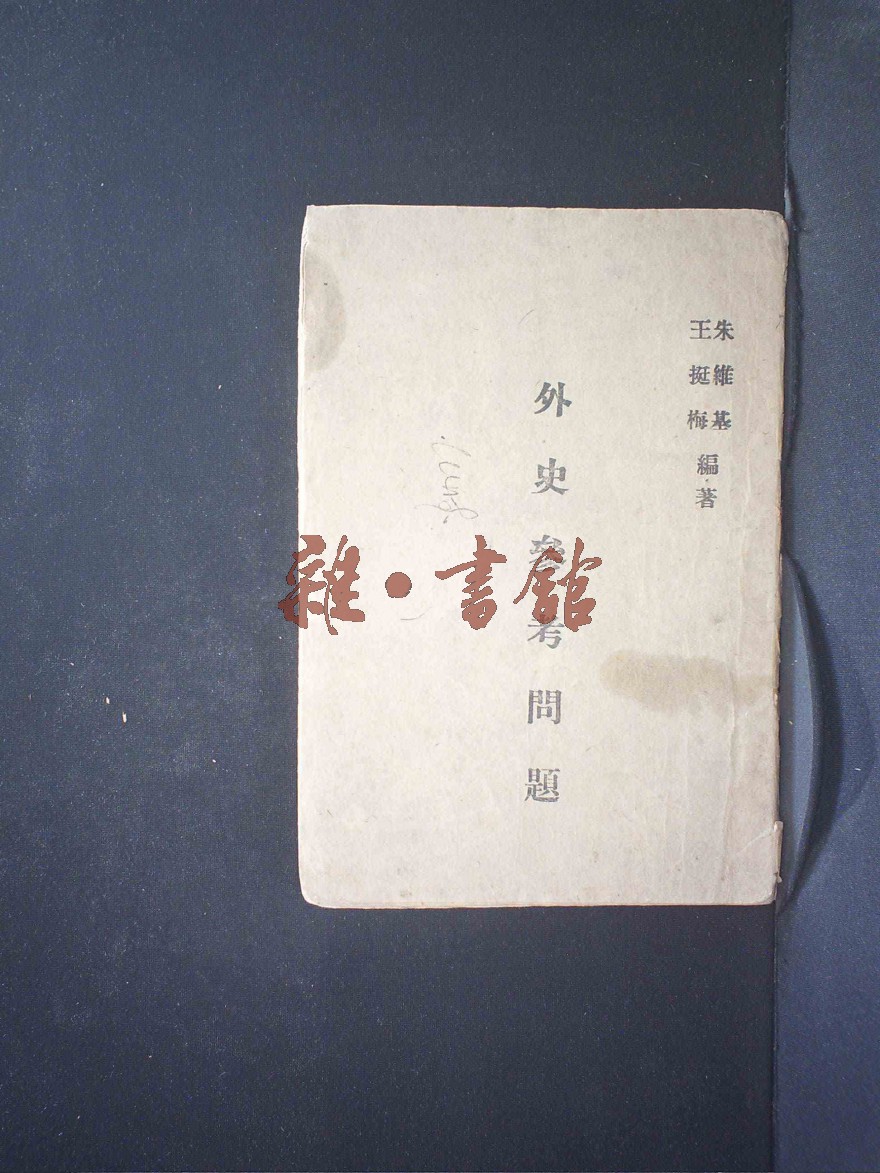 朱維基
王挺梅
編著
外史參考問題
雜·書館